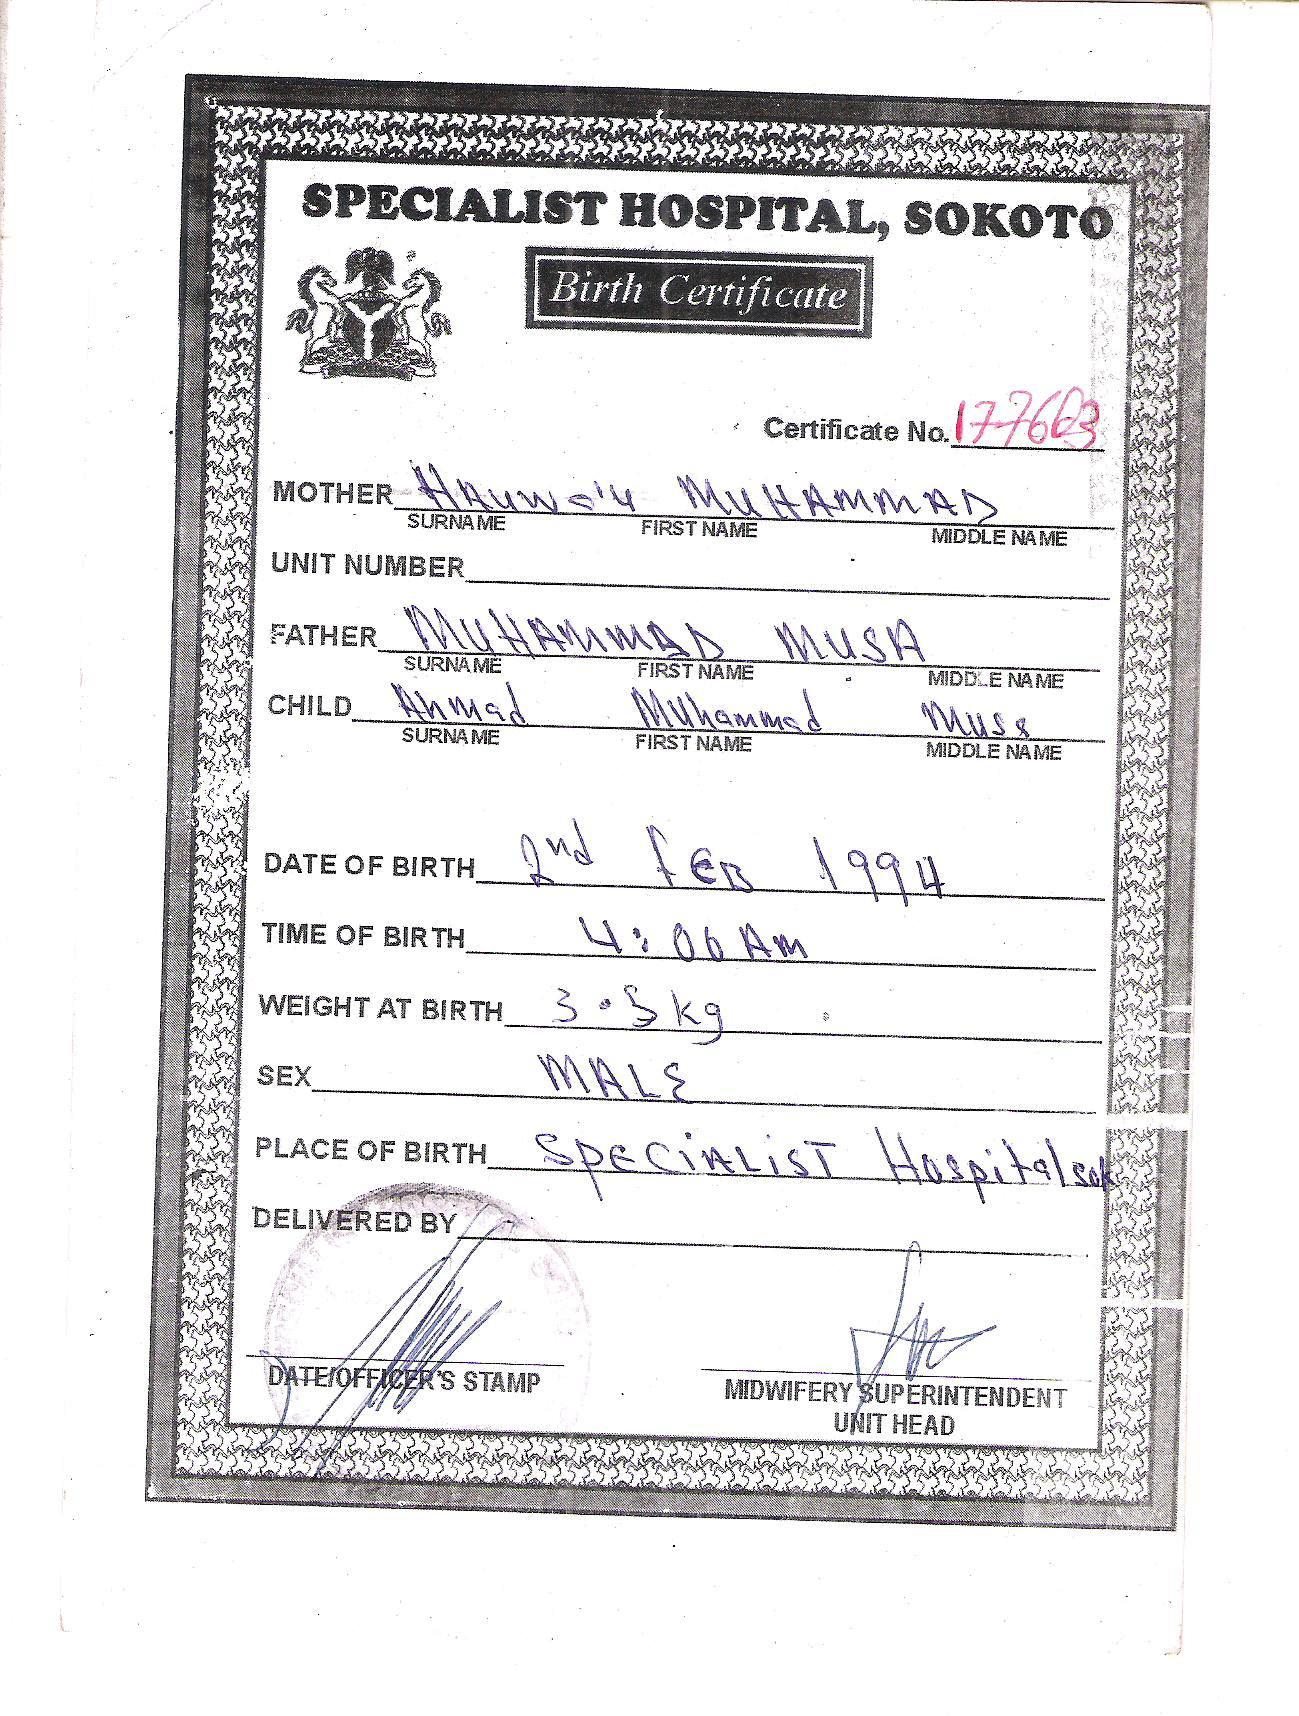 SPECIALIST HOSPITAL, SOKOTO
Birth Certificate
Certificate No.
MOTHER Hauwa'u MUHAMMAD
SURNAME FIRST NAME MIDDLE NAME
UNIT NUMBER
FATHER MUHAMMAD MUSA
SURNAME FIRST NAME MIDDLE NAME
CHILD Ahmad Muhammad Musa
SURNAME FIRST NAME MIDDLE NAME
DATE OF BIRTH 2nd FEB 1994
TIME OF BIRTH 4:06 Am
WEIGHT AT BIRTH 3.3 kg
SEX MALE
PLACE OF BIRTH SPECIALIST Hospital sok
DELIVERED BY
DATE/OFFICER'S STAMP
MIDWIFERY SUPERINTENDENT
UNIT HEAD